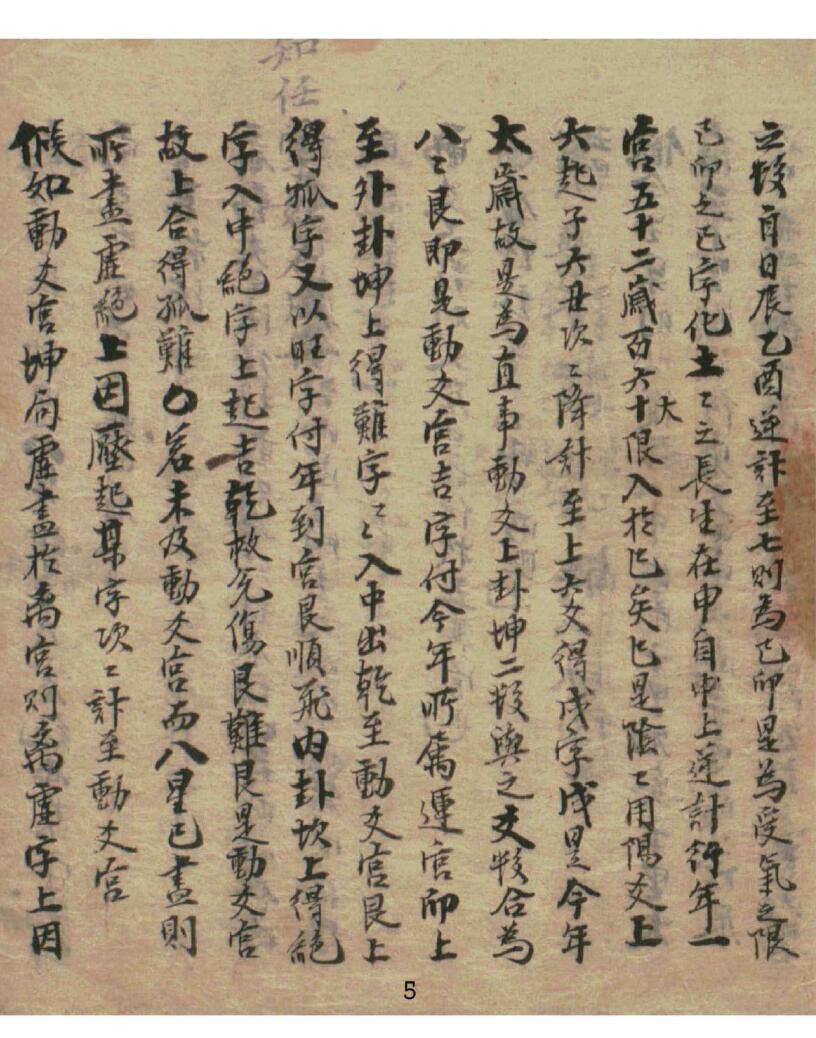 知任
之數自日辰乙酉逆計至七則為己卯是為受氣之限
己卯之己字化土〻之長生在申自申上逆計行年一
宮五十二歲百六十限入於巳矣巳是陰〻用陽爻上
大
六起子六丑次〻降計至上六爻得戌字戌是今年
太歲故是為直事動爻上卦坤二數與之爻數合為
八〻艮即是動爻宮吉字付今年所屬運宮卯上
至外卦坤上得難字〻入中出乾至動爻宮艮上
得孤字又以旺字付年到宮艮順飛內卦坎上得絕
字入中絕字上起吉乾敗兌傷艮難艮是動爻宮
故上合得孤難〇若未及動爻宮而八星已盡則
所盡虛絕上因壓起某字次〻計至動爻宮
假如動爻宮坤局虛盡於离宮則离虛字上因
5